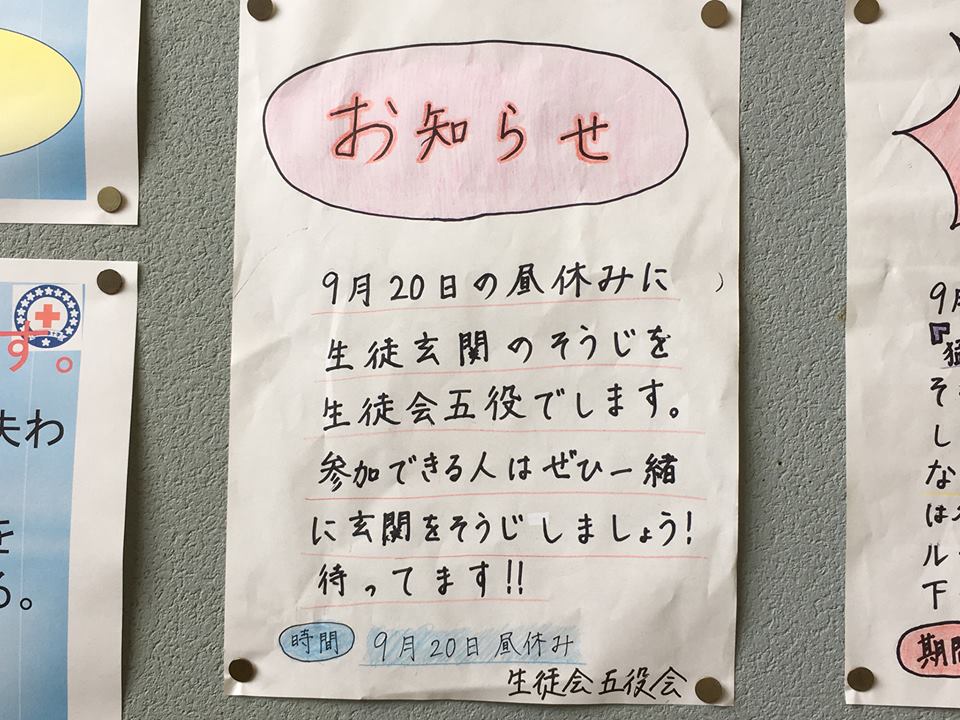 お知らせ
9月20日の昼休みに
生徒玄関のそうじを
生徒会五役でします。
参加できる人はぜひ一緒
に玄関をそうじしましょう!
待ってます!!
時間 9月20日昼休み
生徒会五役会
す。
夫わ
を
る。
9月
『猛
そ
し
な
は
ル
下
期間